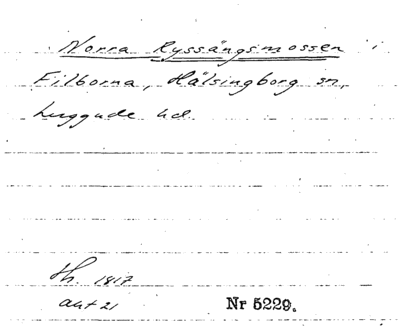 Norra Ryssängsmossen i
Filborna, Hälsingborg sn,
Luggude hd.
Sh. 1817
akt 21
Nr 5229.